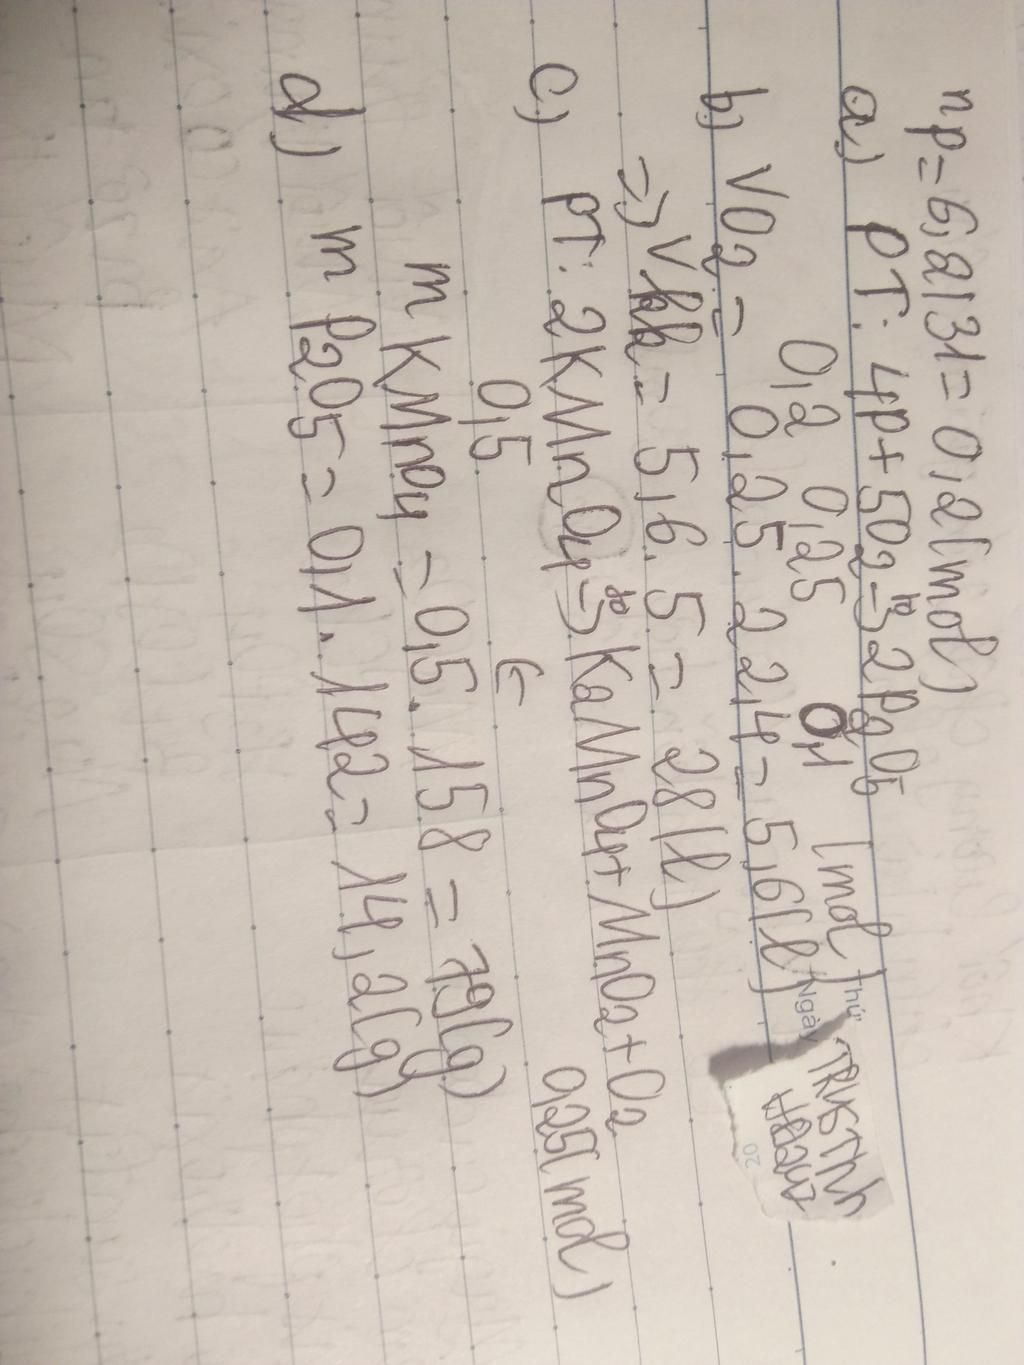 np=6,2/31=0,2(mol)
a) PT: 4P+5O2-to->2P2O5
0,2 0,25 0,1 (mol)
b) VO2= 0,25.22,4=5,6(l)
=> Vkk= 5,6.5= 28(l)
c) PT: 2KMnO4-to->K2MnO4+MnO2+O2
0,5 <- 0,25(mol)
m KMnO4=0,5.158=79(g)
d) m P2O5=0,1.142=14,2(g)
Thứ
Ngày
20
TRUSTMY